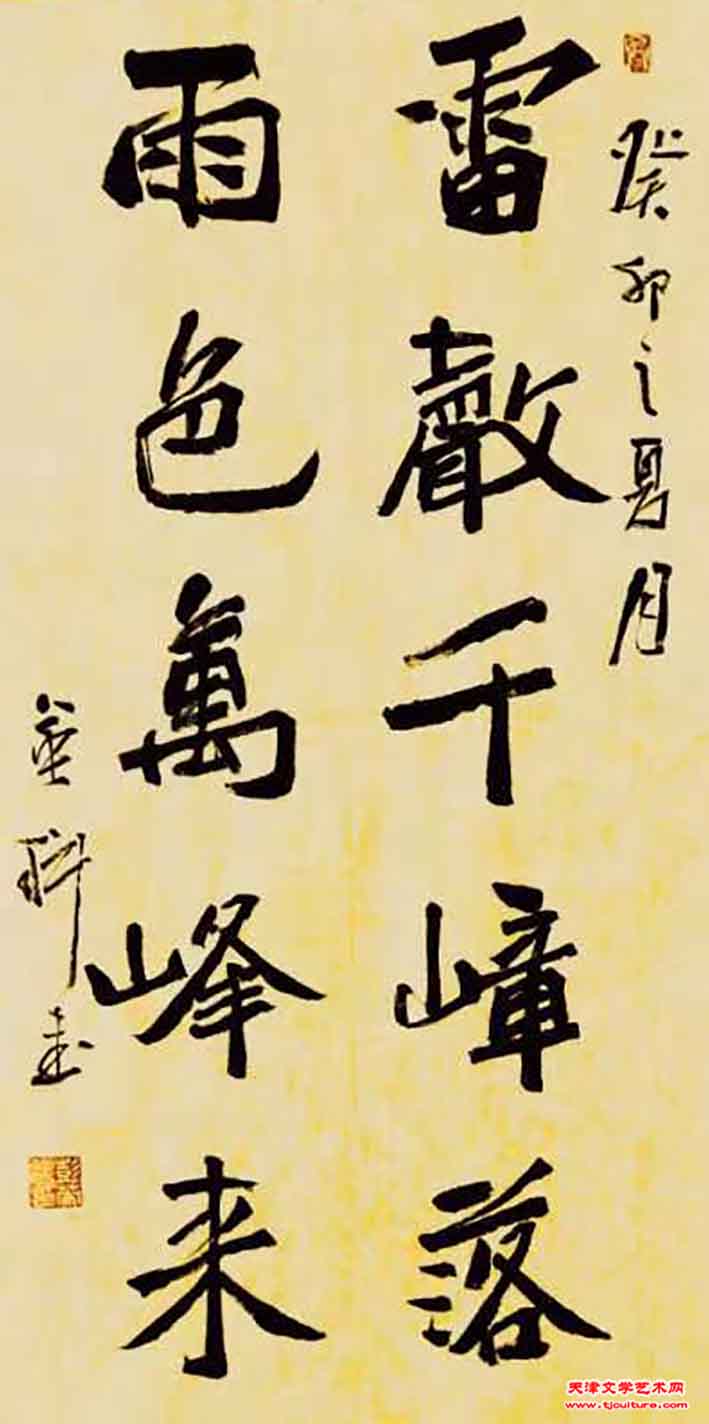 癸卯之夏月
雷聲千嶂落
雨色萬峰来
天津文学艺术网
www.tjculture.com